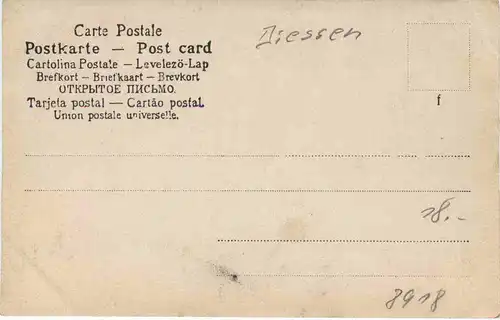 Carte Postale
Postkarte — Post card
Cartolina Postale – Levelező-Lap
Brefkort – Briefkaart – Brevkort
ОТКРЫТОЕ ПИСЬМО.
Tarjeta postal — Cartão postal
Union postale universelle.
Diessen
f
18.-
8918